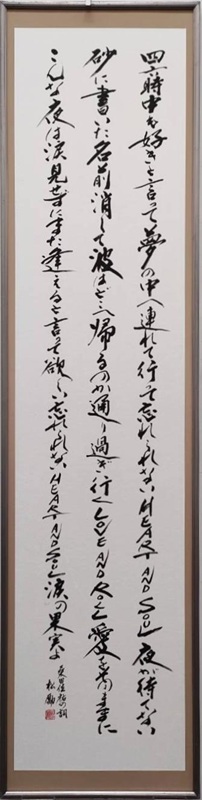 四六時中も好きと言って夢の中へ連れて行って忘れられない HEART AND SOUL 夜が待てない
砂に書いた名前消して波はどこへ帰るのか通り過ぎ行く LOVE AND ROLL 愛をそのままに
こんな夜は涙見せずにまた逢えると言って欲しい忘れられない HEART AND SOUL 涙の果実よ
桑田佳祐の詞